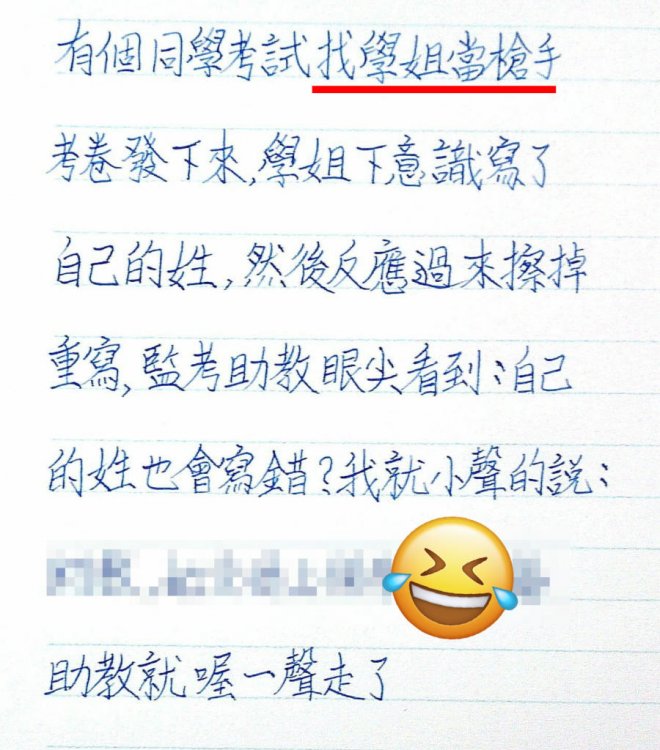 有個同學考試找學姐當槍手
考卷發下來,學姐下意識寫了
自己的姓,然後反應過來擦掉
重寫,監考助教眼尖看到:自己
的姓也會寫錯?我就小聲的說:
助教就喔一聲走了